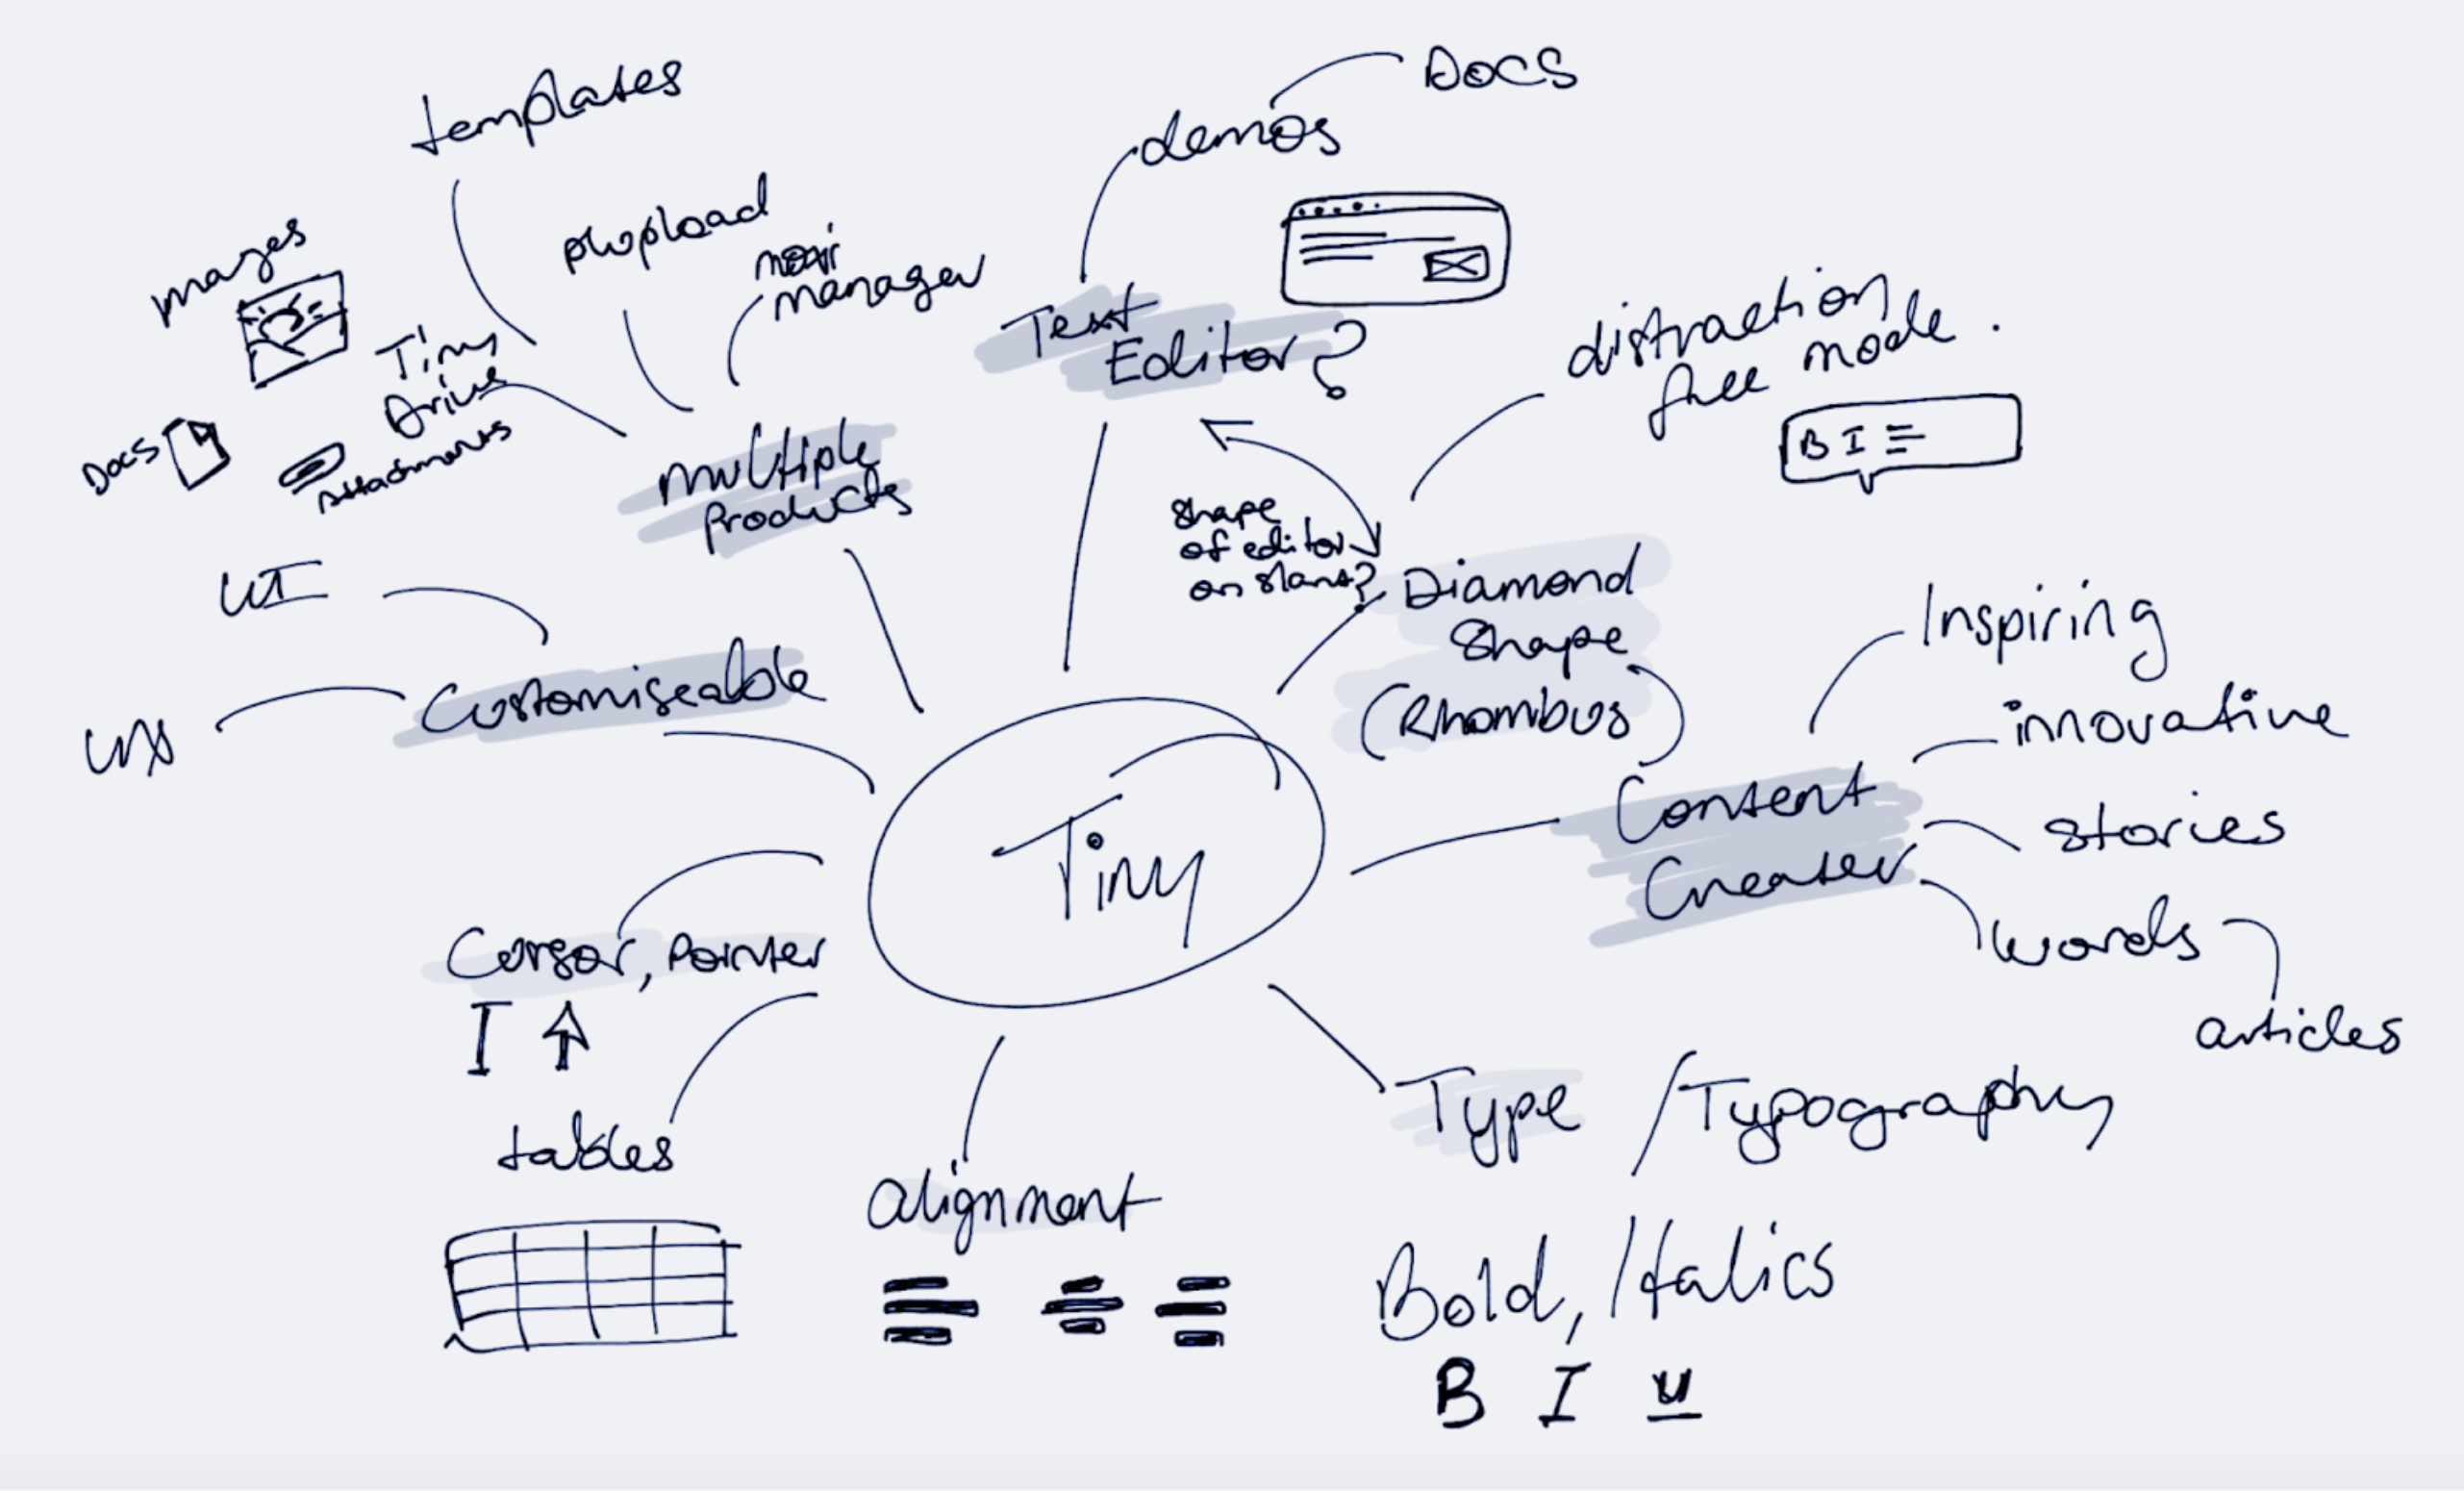 templates
plupload
moxi
manager
images
Tiny
Drive
Docs
Attachments
multiple
Products
UI
UX
Customiseable
Docs
demos
Text
Editor?
distraction
free mode.
B I
shape
of editor
on slant?
Diamond
Shape
(Rhombus)
Inspiring
innovative
stories
words
articles
Content
Creater
Tiny
Cursor, Pointer
I
tables
alignment
Type / Typography
Bold, / Italics
B I U